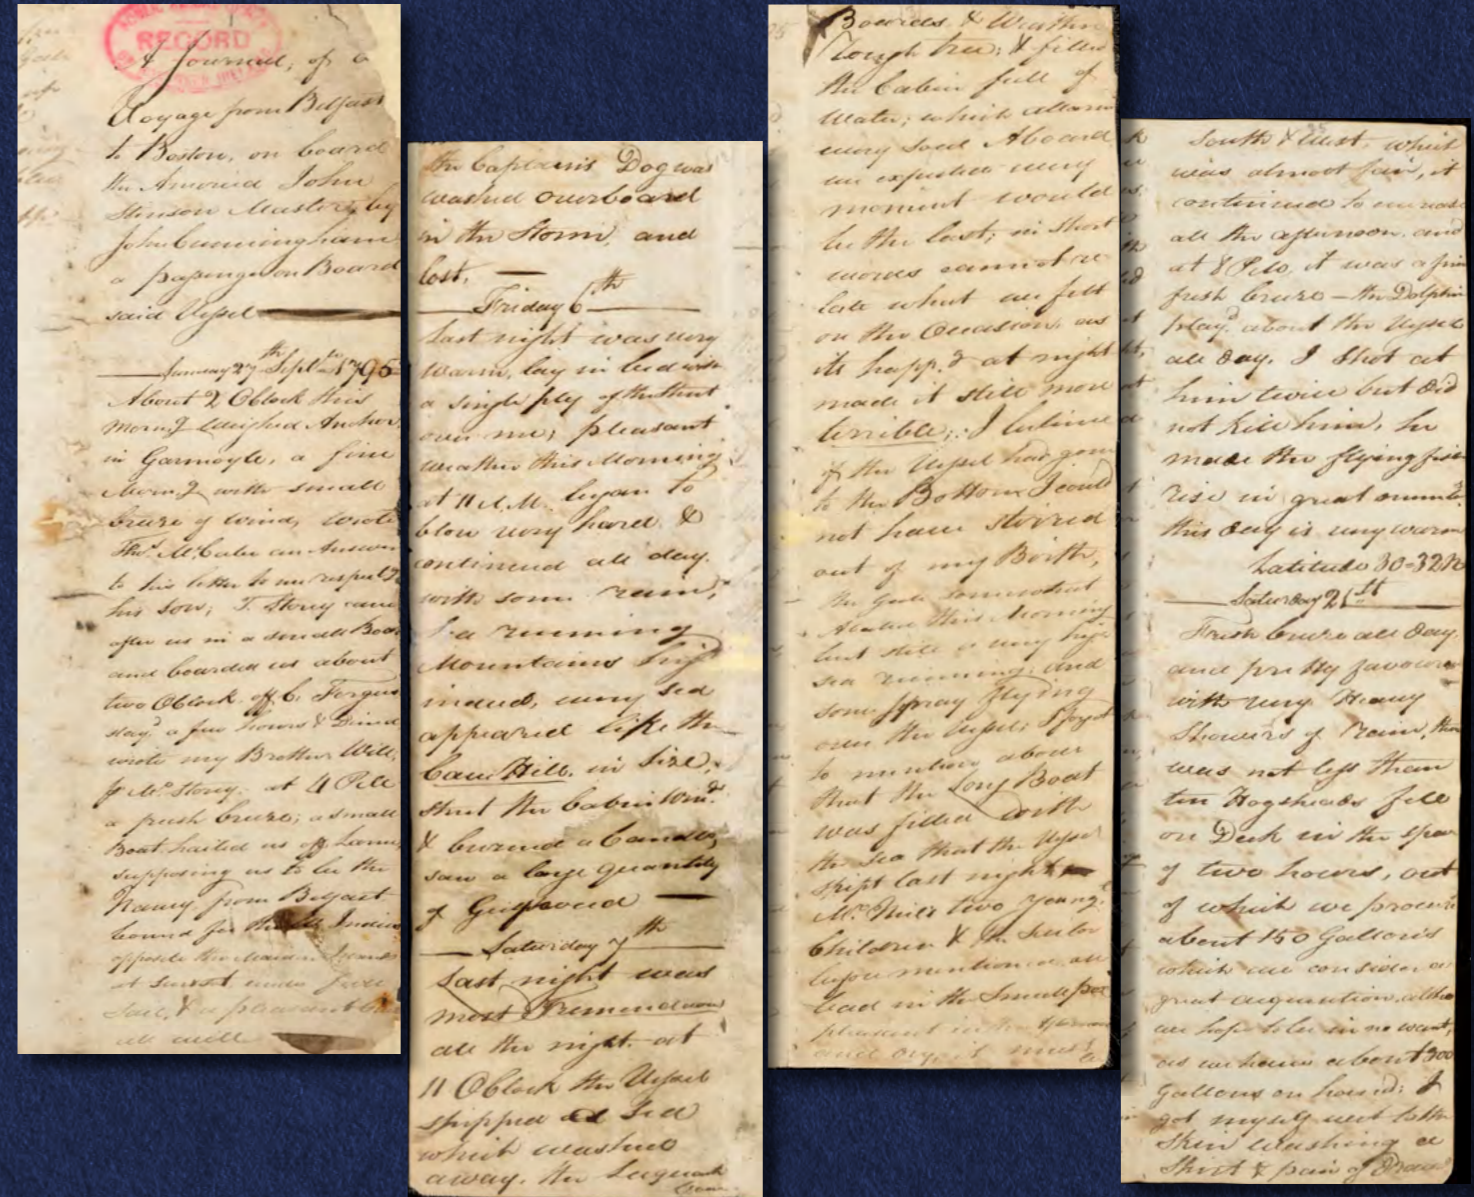 RECORD
A Journal, of a
Voyage from Belfast
to Boston, on board
the America John
Stinson Master, by
John Cunningham
a passenger on Board
said Vessel
Sunday 27th Septr 1795
About 2 OClock this
Morng Weighed Anchor,
in Garmoyle, a fine
Morng with small
breeze of wind, wrote
Thos. McCabe an Answer
to his letter to me respectg
his Son; T. Storey came
after us in a small Boat
and boarded us about
two OClock off C. Fergus
stayd a few hours & Dined
wrote my Brother Will,
pr Mr Storey. at 4 PM
a fresh breeze; a small
Boat hailed us off Larne,
supposing us to be the
Nancy from Belfast
bound for the Indies
opposite the Maiden
at Sunset under
sail, & a pleasant
all well
the Captain's Dog was
washed overboard
in the Storm, and
lost.
Friday 6th
Last night was very
warm, lay in bed with
a single ply of the sheet
over me; pleasant
weather this Morning
at 11 A.M. began to
blow very hard &
continued all day.
with some rain,
Sea running
Mountains high
indeed, every sea
appeared like the
Cave Hill, in Size,
shut the Cabin Wind.
& burned a Candle,
saw a large quantity
of Gulfweed
Saturday 7th
Last night was
most Tremendious
all the night. at
11 OClock the Vessel
shipped a Sea
which washed
away, the
Boards & Weather
Rough tree; & filled
the Cabin full of
Water; which alarmd
every soul Aboard
we expected every
moment would
be the last; in short
words cannot re-
late what we felt
on the Occasion, as
its happd at night
made it still more
terrible; I believe
if the Vessel had gone
to the Bottom I could
not have stirred
out of my Birth,
the Gale somewhat
Abated this Morning
but still a very high
sea running, and
some spray flying
over the Vessel; I forgot
to mention above
that the Long Boat
was filled with
the Sea that the Vessel
shipt last night
Mr. Neil's two young
Children & the Sailor
before mentioned are
bad in the Small pox
pleasant in the
and
South & West, which
was almost fair, it
continued to increase
all the afternoon. and
at 8 PM, it was a fine
fresh breeze — the Dolphin
playd about the Vessel
all day. I Shot at
him twice but did
not kill him, he
made the flying fish
rise in great numbr.
this day is very warm
Latitude 30-32 N
Saturday 21st
Fresh breeze all day.
and pretty favour
with very Heavy
Showers of rain, there
was not less than
ten Hogsheads fell
on Deck in the space
of two hours, out
of which we procured
about 150 Gallons
which we consider a
great acquisition, altho
we hope to be in no want,
as we have about 300
Gallons on board: I
got myself wet to the
Skin washing a
Shirt & pair of Drawers